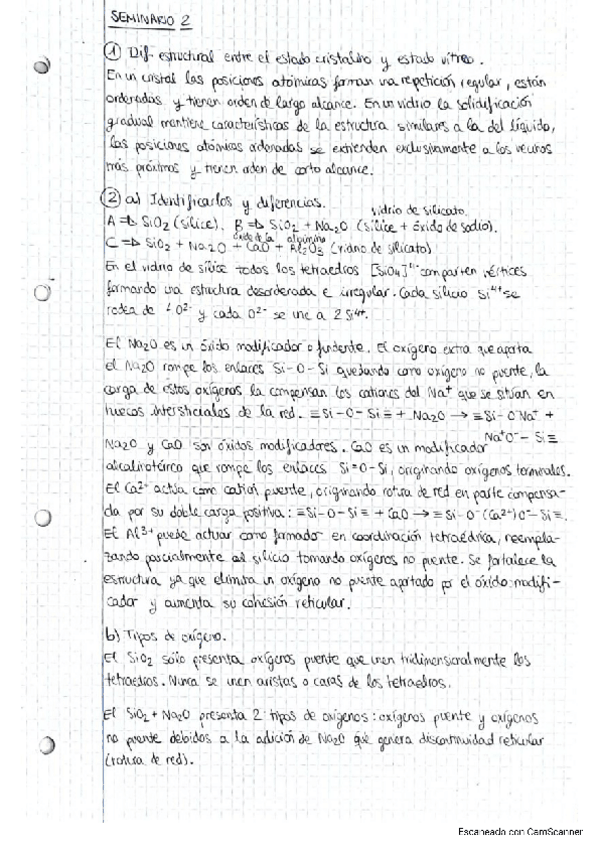 SEMINARIO 2
① Dif. estructural entre el estado cristalino y estado vítreo.
En un cristal las posiciones atómicas forman una repetición regular, están
ordenadas y tienen orden de largo alcance. En un vidrio la solidificación
gradual mantiene características de la estructura similares a la del líquido,
las posiciones atómicas ordenadas se extienden exclusivamente a los vecinos
más próximos y tienen orden de corto alcance.
② a) Identificarlos y diferencias.
vidrio de silicato.
A => SiO2 (sílice). B => SiO2 + Na2O (sílice + óxido de sodio).
C => SiO2 + Na2O + CaO + Al2O3 (vidrio de silicato)
En el vidrio de sílice todos los tetraedros [SiO4]4- comparten vértices
formando una estructura desordenada e irregular. Cada silicio Si4+ se
rodea de 4 O2- y cada O2- se une a 2 Si4+.
El Na2O es un óxido modificador o fundente. El oxígeno extra que aporta
el Na2O rompe los enlaces Si-O-Si quedando como oxígeno no puente, la
carga de estos oxígenos la compensan los cationes del Na+ que se sitúan en
huecos intersticiales de la red. ≡Si-O-Si≡ + Na2O → ≡Si-O-Na+ +
Na+O--Si≡
Na2O y CaO son óxidos modificadores. CaO es un modificador
alcalinotérreo que rompe los enlaces Si-O-Si, originando oxígenos terminales.
El Ca2+ actúa como catión puente, originando rotura de red en parte compensa-
da por su doble carga positiva: ≡Si-O-Si≡ + CaO → ≡Si-O-(Ca2+)O--Si≡.
El Al3+ puede actuar como formador en coordinación tetraédrica, reempla-
zando parcialmente al silicio tomando oxígenos no puente. Se fortalece la
estructura ya que elimina un oxígeno no puente aportado por el óxido modifi-
cador y aumenta su cohesión reticular.
b) Tipos de oxígeno.
El SiO2 sólo presenta oxígenos puente que unen tridimensionalmente los
tetraedros. Nunca se unen aristas o caras de los tetraedros.
El SiO2 + Na2O presenta 2 tipos de oxígenos: oxígenos puente y oxígenos
no puente debidos a la adición de Na2O que genera discontinuidad reticular
(rotura de red).
Escaneado con CamScanner